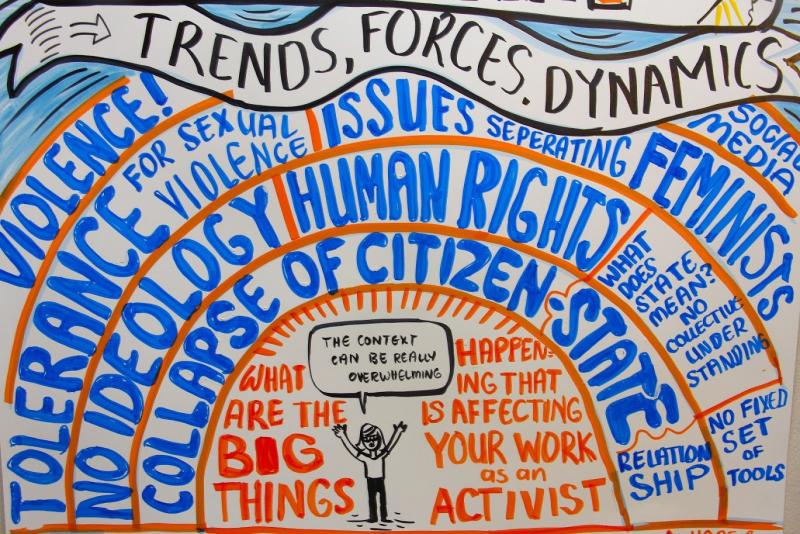 TRENDS, FORCES, DYNAMICS
VIOLENCE!
TOLERANCE FOR SEXUAL
VIOLENCE
ISSUES SEPERATING FEMINISTS
SOCIAL
MEDIA
NO IDEOLOGY
HUMAN RIGHTS
WHAT
DOES
STATE
MEAN?
NO
COLLECTIVE
UNDER
STANDING
COLLAPSE OF CITIZEN-STATE
RELATION
SHIP
NO FIXED
SET
OF
TOOLS
THE CONTEXT
CAN BE REALLY
OVERWHELMING
WHAT
ARE THE
BIG
THINGS
HAPPEN-
ING THAT
IS AFFECTING
YOUR WORK
as an
ACTIVIST